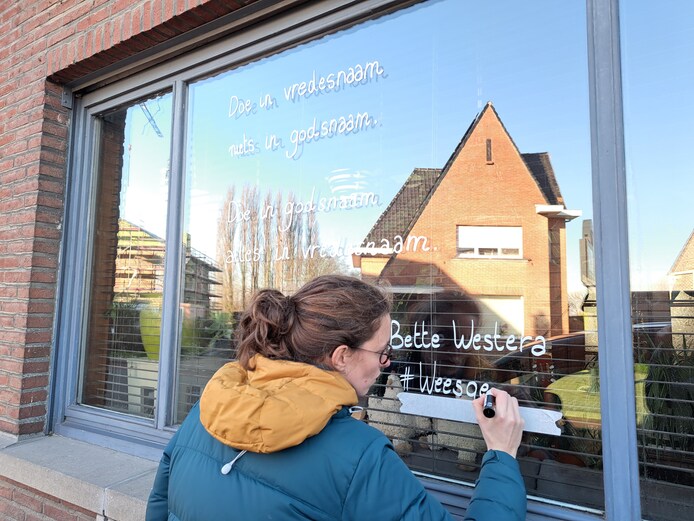 Doe in vredesnaam
niets in godsnaam.
Doe in godsnaam
alles in vredesnaam.
Bette Westera
#Weesge